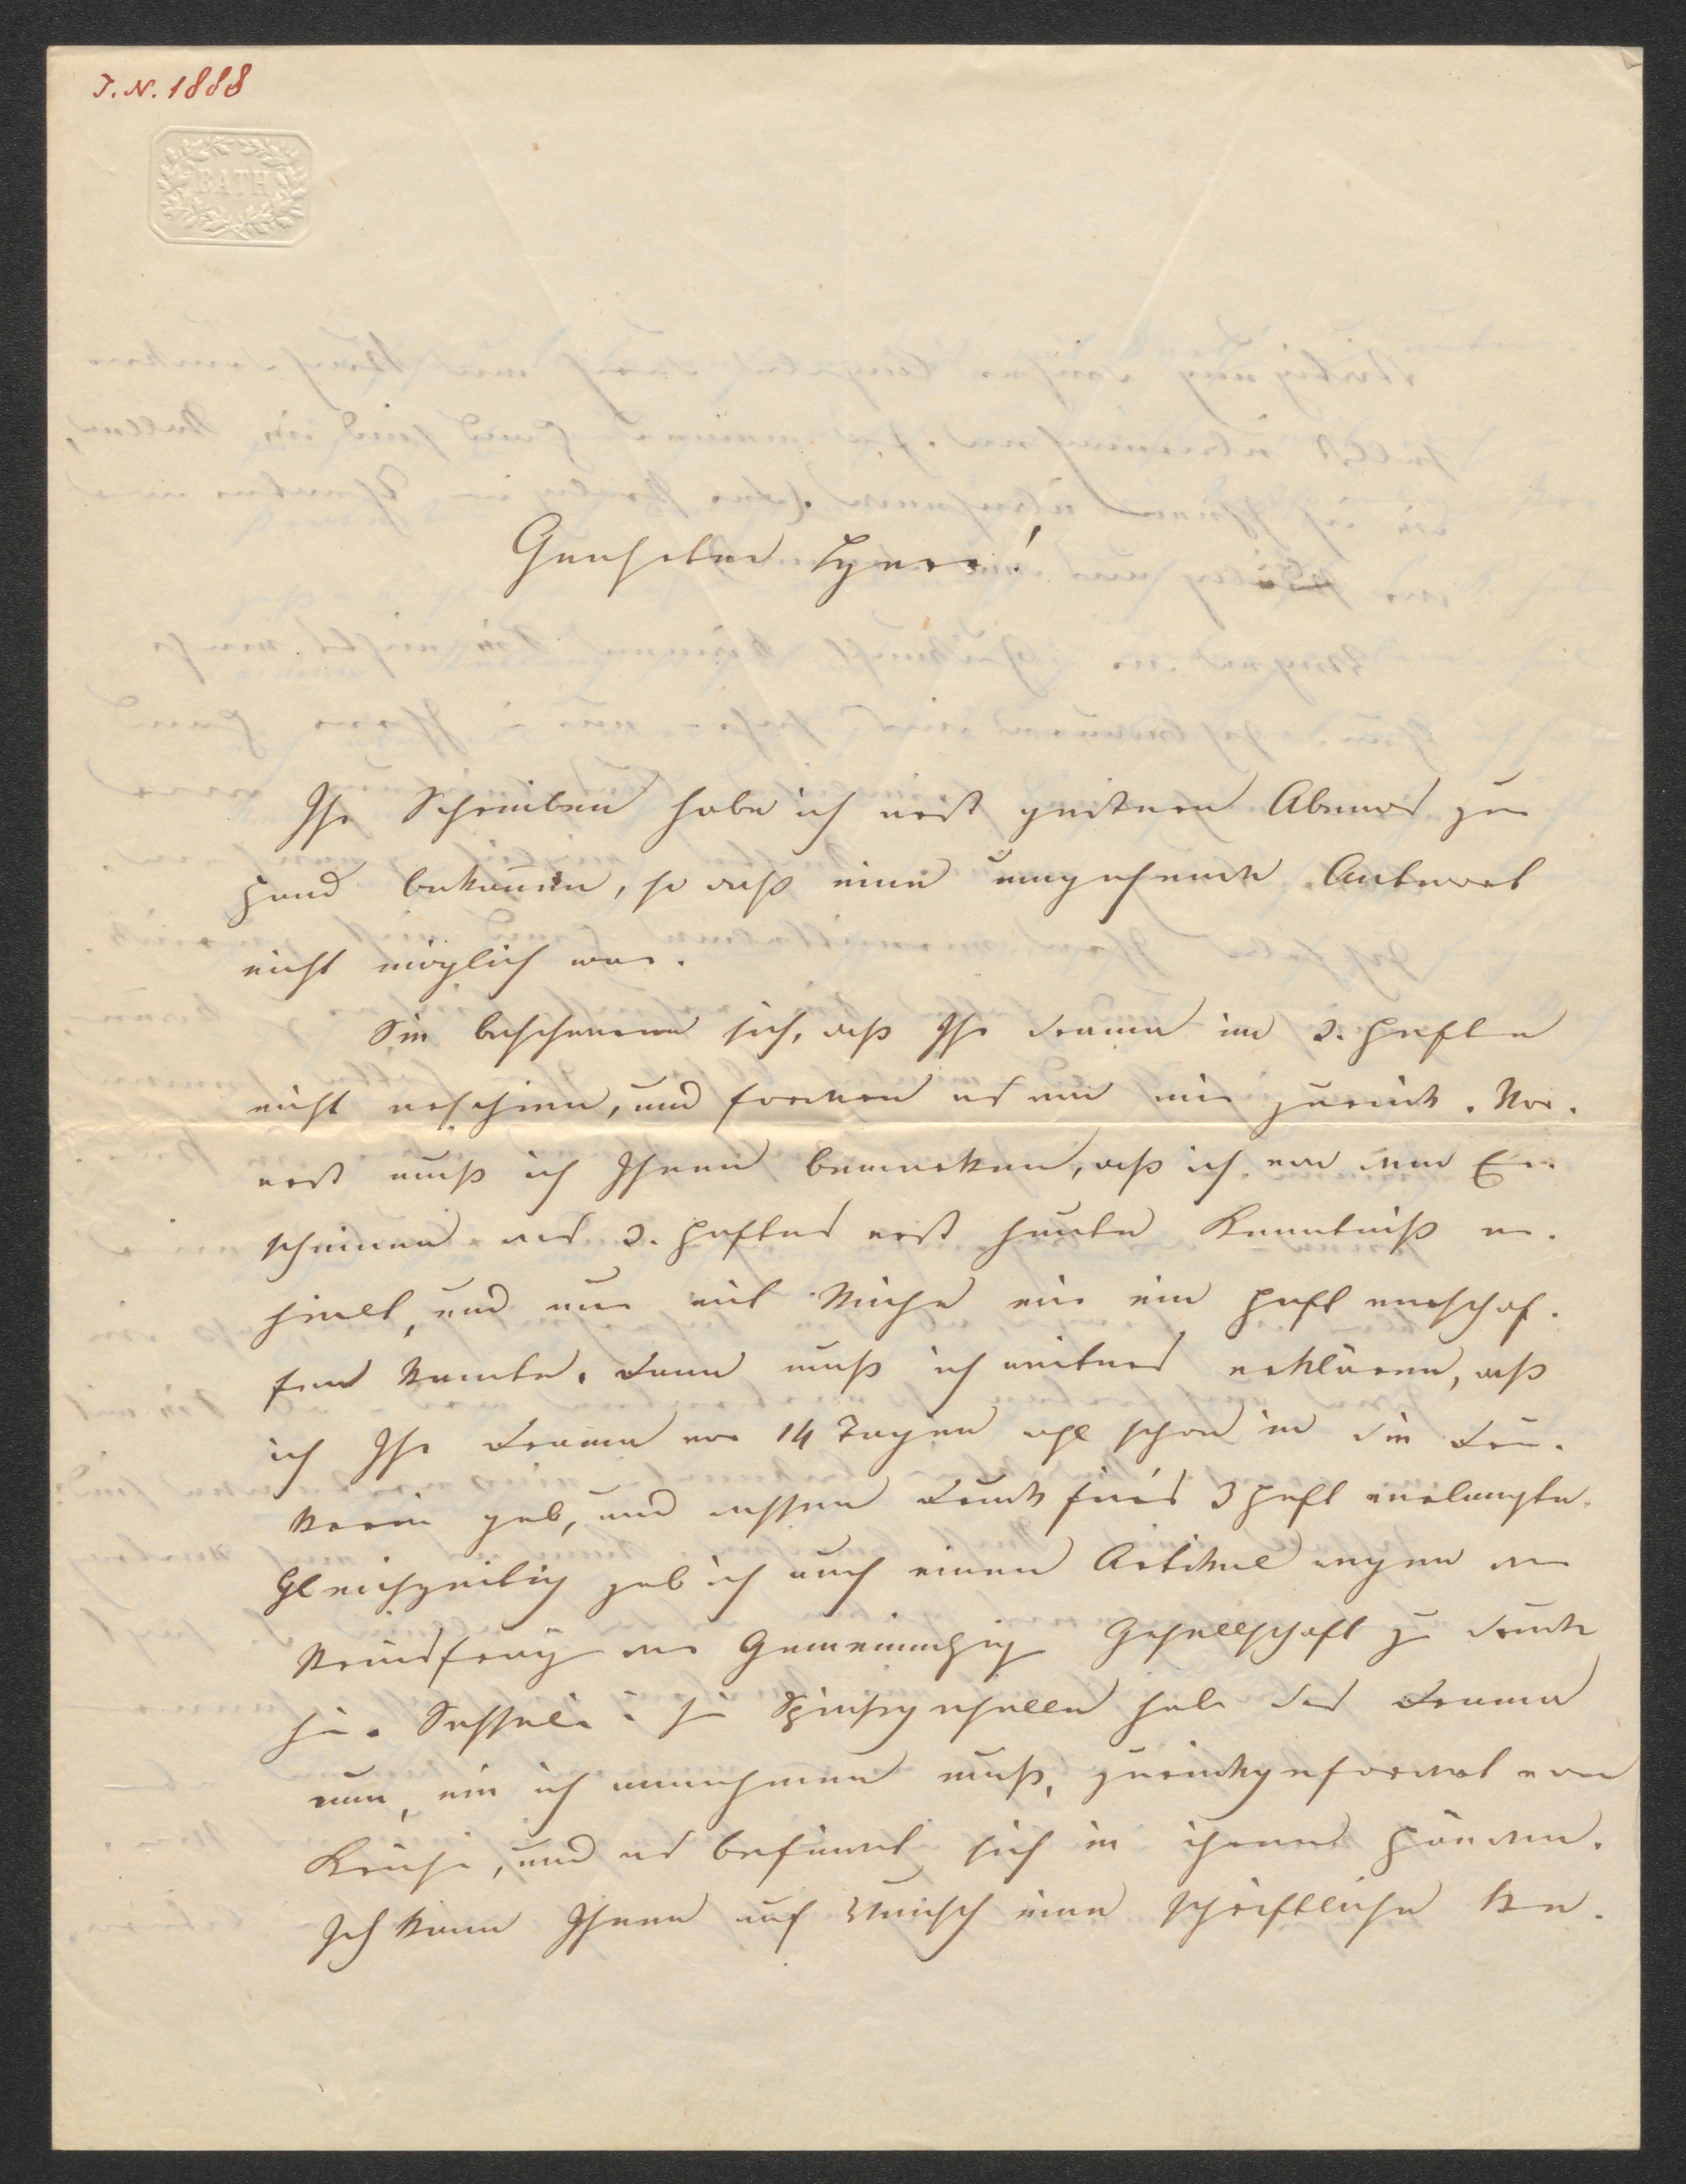 J. N. 1888
BATH
Geehrter Herr!
Ihr Schreiben habe ich erst gestern Abend zu
Hand bekommen, so daß eine umgehende Antwort
nicht möglich war.
Sie beschweren sich, daß Ihr Drama im 2. Hefte
nicht erschien, und fordern es von mir zurück. Vor-
erst muß ich Ihnen bemerken, daß ich von dem Er-
scheinen des 2. Heftes erst heute Kenntniß er-
hielt, und nur mit Mühe mir ein Heft verschaf-
fen konnte. Dann muß ich weiters erklären, daß
ich Ihr Drama vor 14 Tagen schon in die Dru-
ckerei gab, und dessen Druck für's 3 Heft verlangte.
Gleichzeitig gab ich auch einen Artikel wegen der
der Gemeinnützig Gesellschaft zu Druck
hin. das Drama
nun, wie ich annehmen muß, zurückgefordert von
und es befindet sich in ihren Händen.
Ich kann Ihnen auf Wunsch eine schriftliche Be-